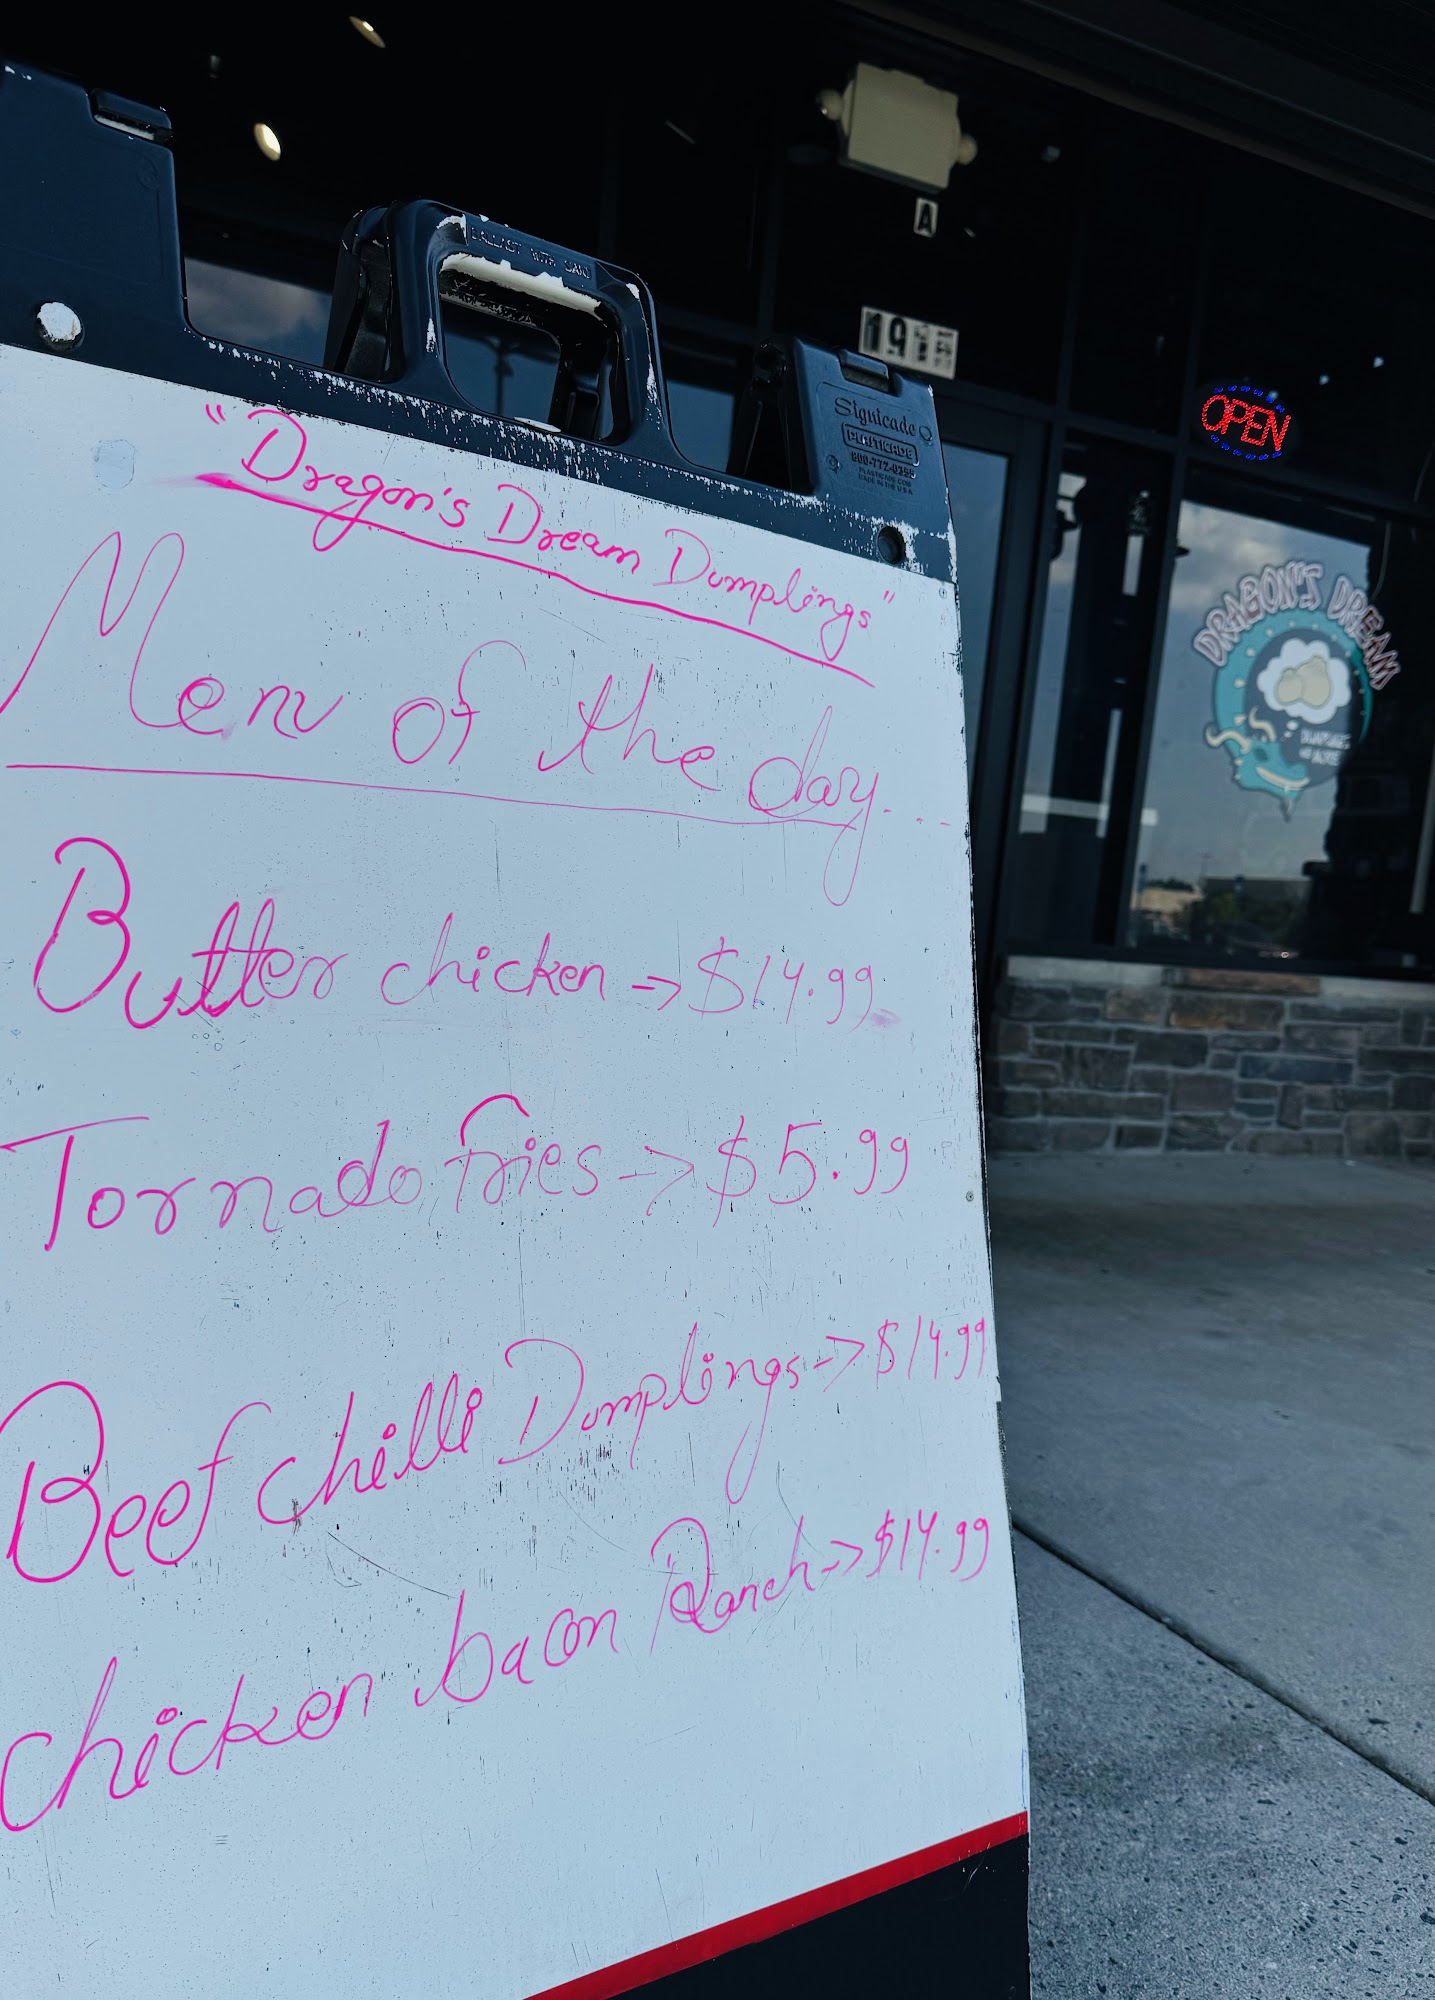 BALLAST WITH SAND
A
19
Signicade
PLASTICADE
800-772-0355
PLASTICADE.COM
MADE IN THE U.S.A.
OPEN
"Dragon's Dream Dumplings"
Menu of the day....
Butter chicken → $14.99
Tornado fries → $5.99
Beef chilli Dumplings → $14.99
chicken bacon Ranch → $14.99
DRAGON'S DREAM
DUMPLINGS